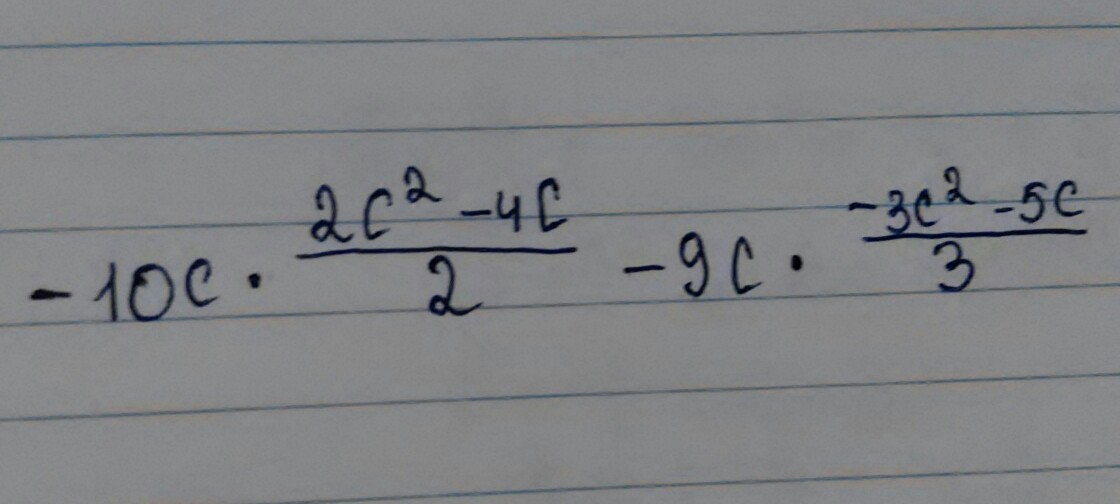 -10c · \frac{2c^2 - 4c}{2} - 9c · \frac{-3c^2 - 5c}{3}